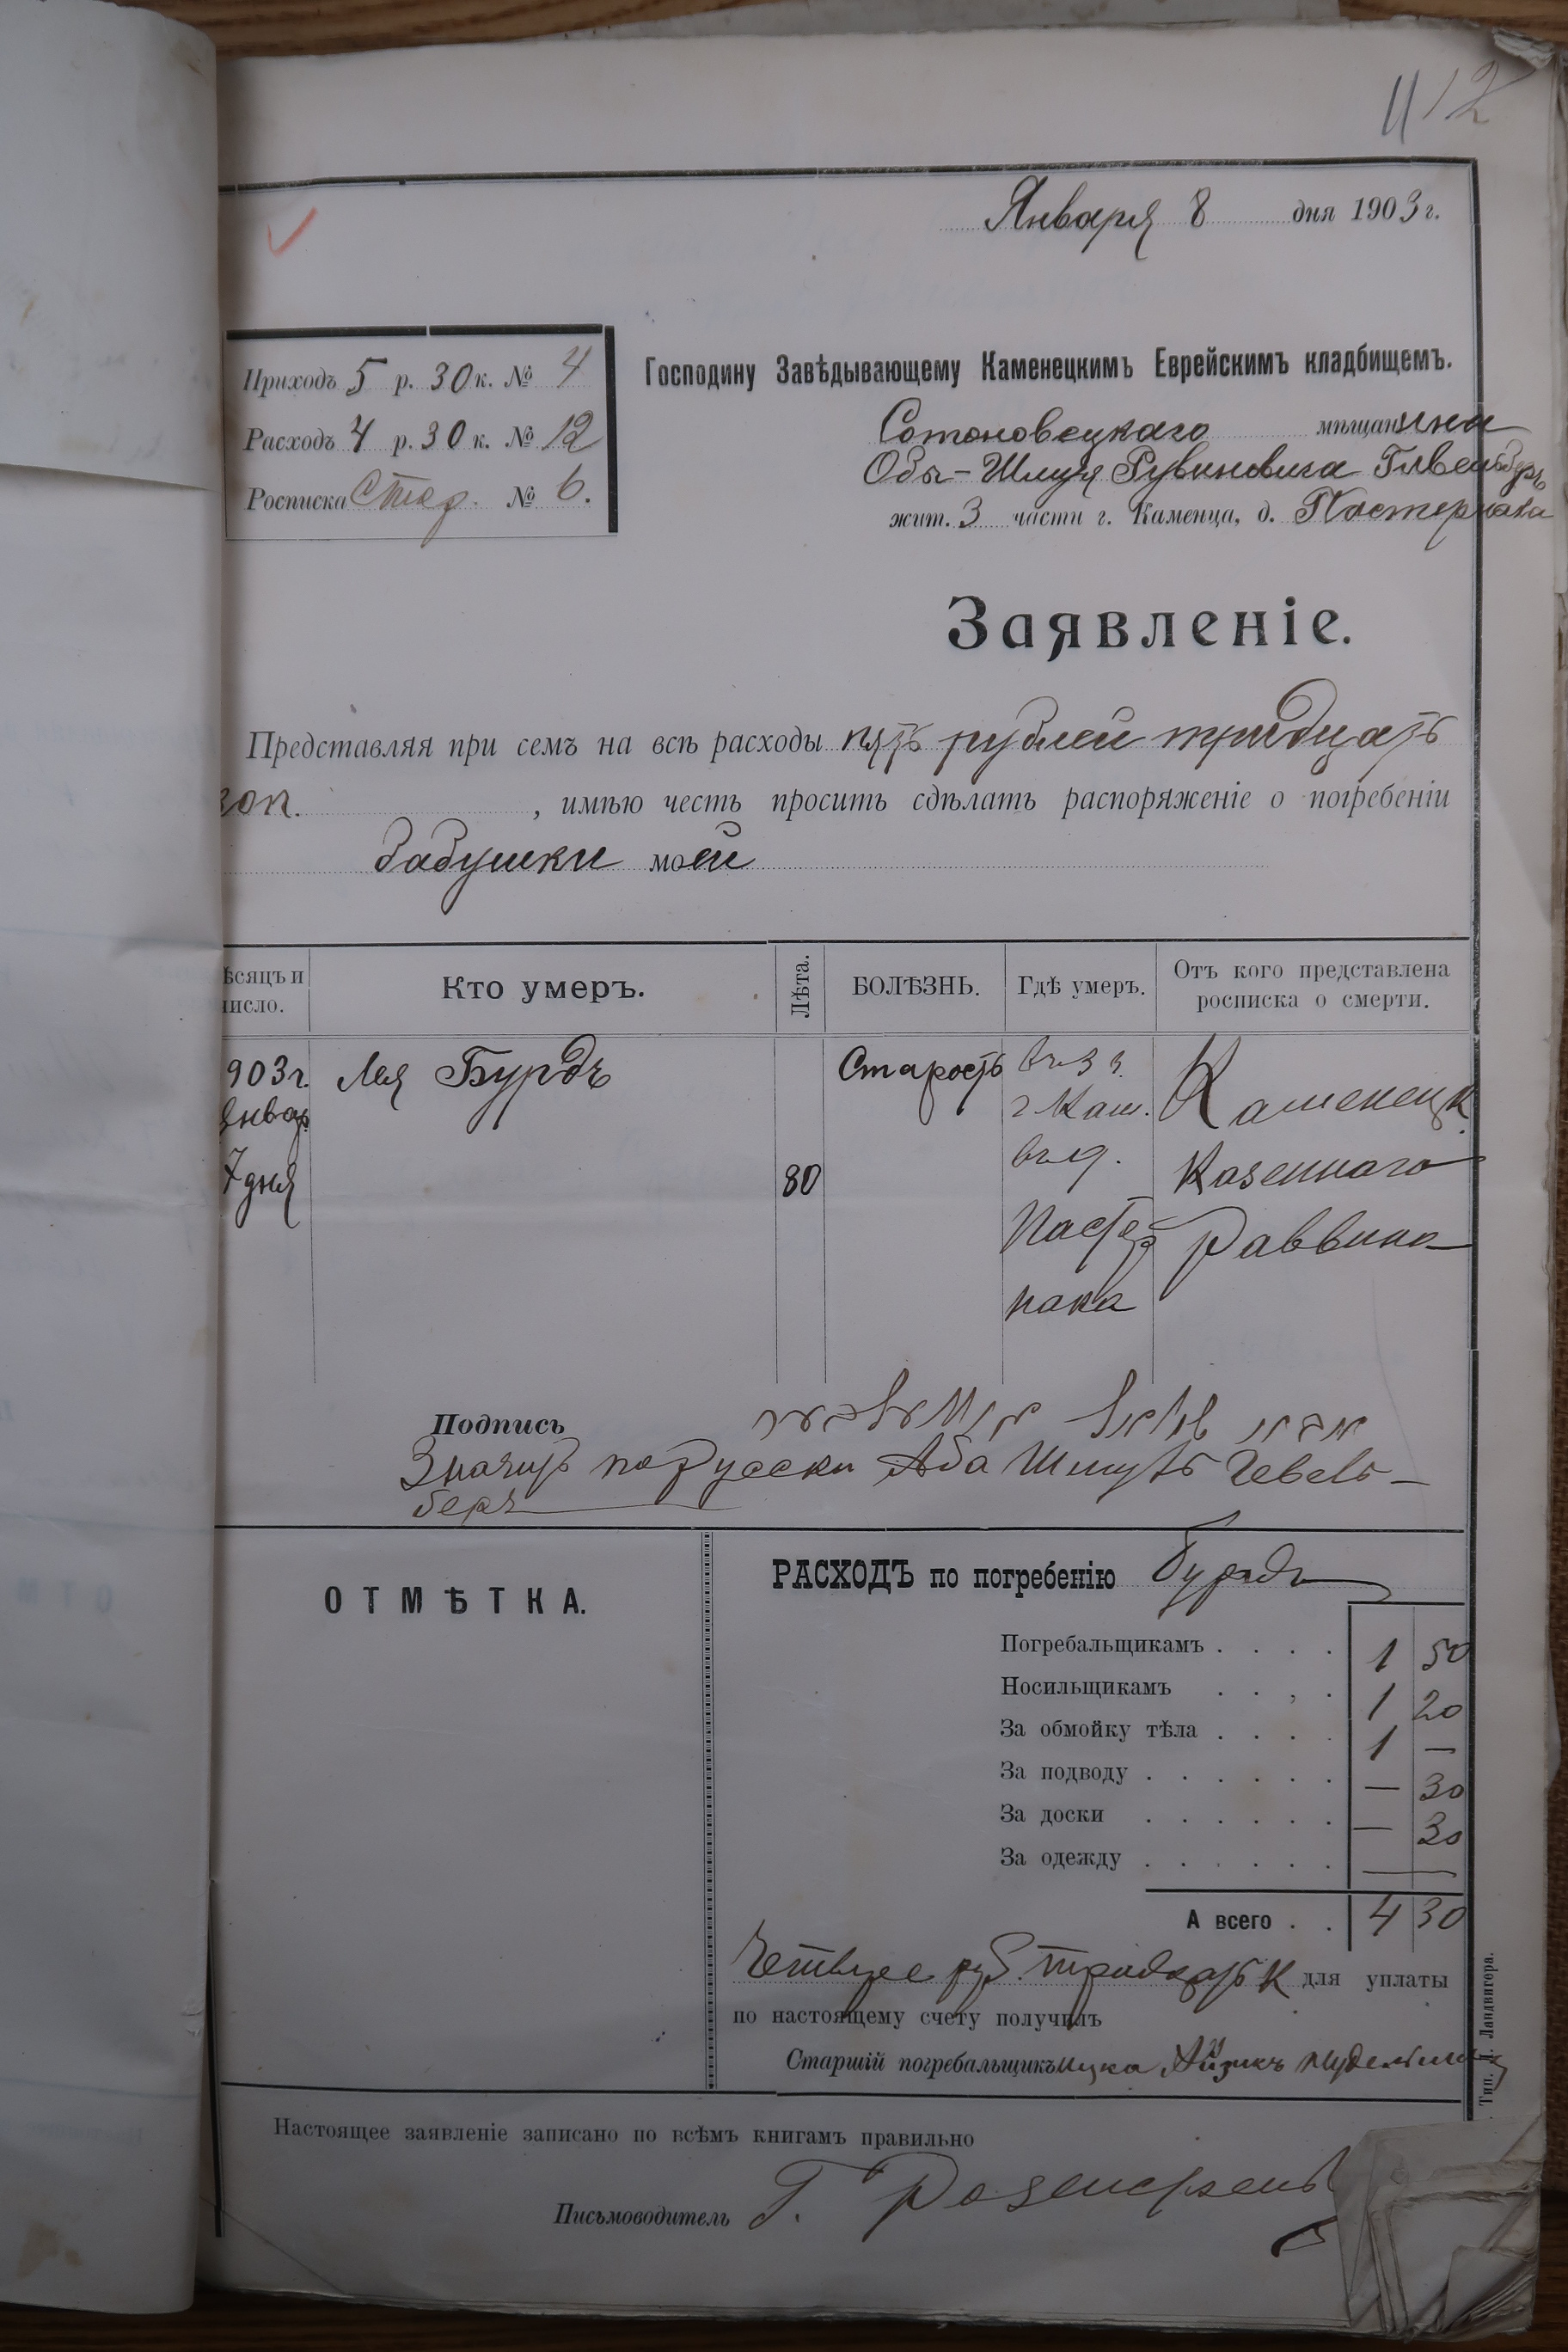 12
Января 8 дня 1903 г.
Приходъ 5 р. 30 к. № 4
Расходъ 4 р. 30 к. № 12
Росписка Стар. № 6.
Господину Завѣдывающему Каменецкимъ Еврейскимъ кладбищемъ.
мѣщанина
Шмуля Рувиновича
жит. 3 части г. Каменца, д. Пастернака
Заявленіе.
Представляя при семъ на всѣ расходы пять рублей тридцать
коп. , имѣю честь просить сдѣлать распоряженіе о погребеніи
бабушки моей
ѣсяцъ и число. Кто умеръ. Лѣта. БОЛѢЗНЬ. Гдѣ умеръ. Отъ кого представлена росписка о смерти.
903 г. Лея Бурдъ Старость въ 3 ч. Каменецк.
Январ. г Кам.
7 дня 80 въ д. Казеннаго
Пастер Раввина
нака
Подпись
Значитъ по Русски Аба Шмуль Гевель-
беръ
ОТМѢТКА.
РАСХОДЪ по погребенію Бурдъ
Погребальщикамъ . . . . 1 50
Носильщикамъ . . , . 1 20
За обмойку тѣла . . . . 1 —
За подводу . . . . . . — 30
За доски . . . . . . — 30
За одежду . . . . . . —
А всего . . 4 30
руб. тридцать к для уплаты
по настоящему счету получилъ
Старшій погребальщикъ Ицка Айзикъ
Тип. Д. Ландвигера.
Настоящее заявленіе записано по всѣмъ книгамъ правильно
Письмоводитель Г.